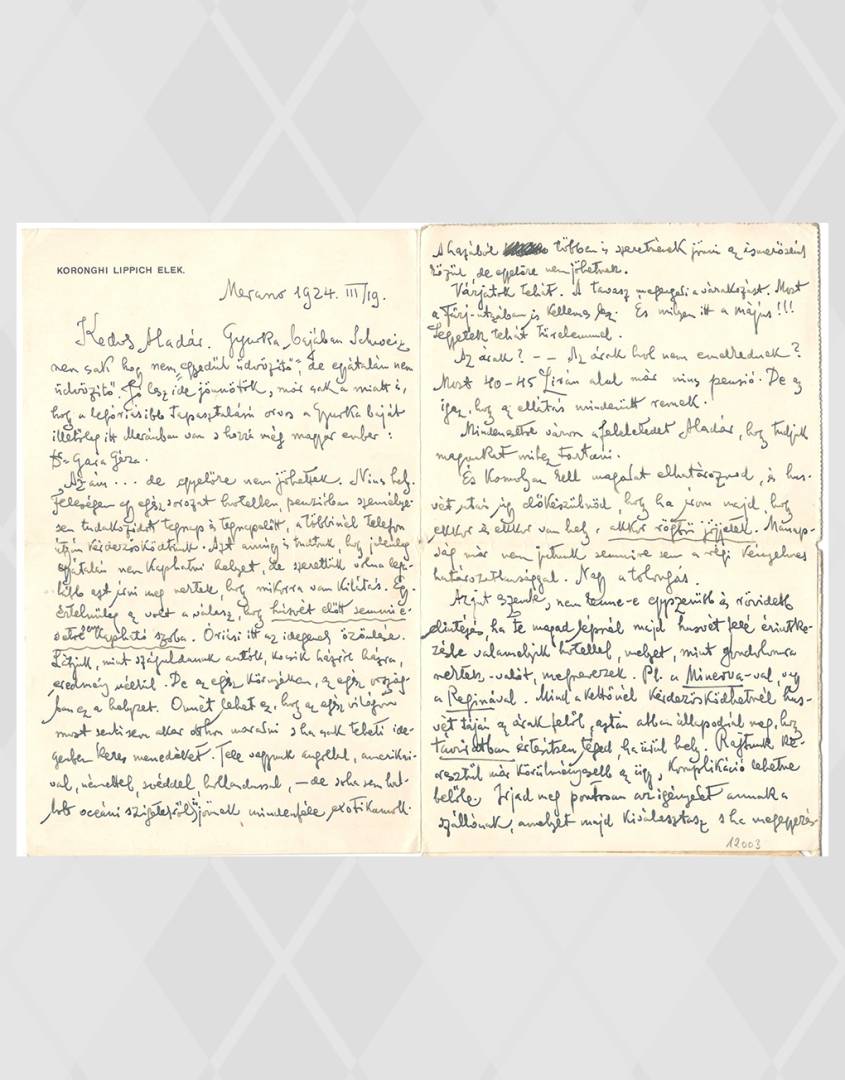 KORONGHI LIPPICH ELEK.
Merano 1924. III/19.
Kedves Aladár. Gyurka bajában Schweiz
nem csak hogy nem „egyedül üdvözítő", de egyátalán nem
üdvözítő. Jó lesz ide jönnötök, már csak a miatt is,
hogy a legóriásibb tapasztalású orvos a Gyurka baját
illetőleg itt Meránban van s hozzá még magyar ember:
Dr Gara Géza.
Azám ... de egyelőre nem jöhettek. Nincs hely.
Feleségem egy egész sorozat hotelben, penzióban személye-
sen tudakozódott tegnap és tegnapelőtt, a többinél telefon
útján kérdezősködtünk. Azt amúgy is tudtuk, hogy jelenleg
egyátalán nem kaphatni helyet, de szerettük volna leg-
alább azt jönni meg, hogy mikorra van kilátás. Egy-
értelműleg az volt a válasz, hogy húsvét előtt semmi e-
setre sem kapható szoba. Óriási itt az idegenek özönlése.
Látjuk, mint száguldanak autók, kocsik házról házra,
eredmény nélkül. De az egész környéken, az egész ország-
ban ez a helyzet. Omét lehet ez, hogy az egész világon
most senki sem akar otthon maradni s ha csak teheti ide-
genben keres menedéket. Tele vagyunk angollal, amerikai-
val, némettel, svéddel, hollandussal, — de soha sem hal-
lott oceáni szigetekről is jönnek mindenféle exotikumok.
A hazából többen is szeretnének jönni az ismerőseink
közül, de egyelőre nem jöhetnek.
Várjatok tehát. A tavasz megengedi a várakozást. Most
a Férj-utzában is kellemes lesz. És milyen itt a május!!!
Legyetek tehát türelemmel.
Az árak? — — Az árak hol nem emelkednek?
Most 40-45 Lirán alul már nincs pensió. De az
igaz, hogy az ellátás mindenütt remek.
Mindenesetre várom a feleletedet Aladár, hogy tudjuk
magunkat mihez tartani.
És komolyan kell magadat elhatároznod, és hus-
vét után úgy előkészülnöd, hogy ha írom majd, hogy
ekkor és ekkor van hely, akkor rögtön jöjjetek. Mányp-
ság már nem jutunk semmire sem a régi kényelmes
határozatlansággal. Nagy a tolongás.
Azért szerntem, nem lenne-e egyszerűbb és rövidebb
elintézés, ha te magad lépnél majd husvét felé érintke-
zésbe valamelyik hotellel, melyet, mint gondolomra
nektek-valót, megnevezek. Pl. a Minerva-val, vagy
a Reginával. Mind a kettőnél kérdezősködhetnél hus-
vét táján az árak felől, aztán abban állapodnál meg, hogy
táviratban értesítsen téged, ha ürül hely. Rajtunk ke-
resztül már körülményesebb az ügy, komplikáció lehetne
belőle. Írjad meg pontosan az igényeidet annak a
szállónak, amelyet majd kiválasztasz s ha megegyezés
12003